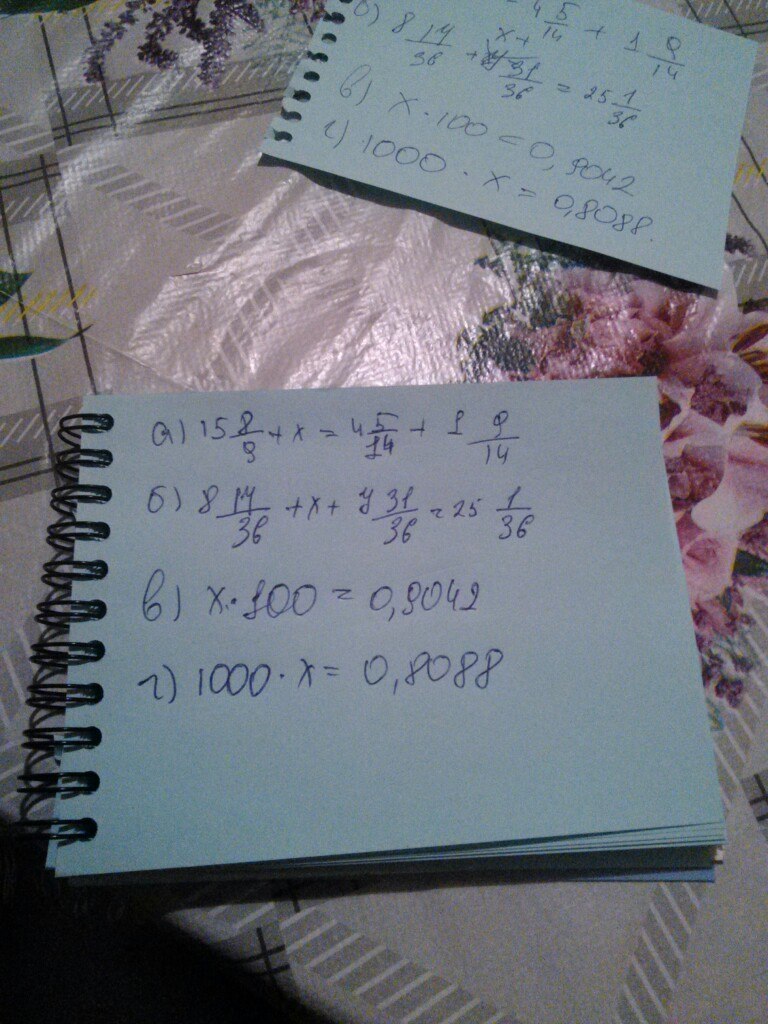 = 4 5/14 + 1 9/14
б) 8 14/36 + x + 31/36 = 25 1/36
в) x · 100 = 0,9042
г) 1000 · x = 0,8088.
а) 15 8/9 + x = 4 5/14 + 1 9/14
б) 8 14/36 + x + 7 31/36 = 25 1/36
в) x · 100 = 0,9042
г) 1000 · x = 0,8088